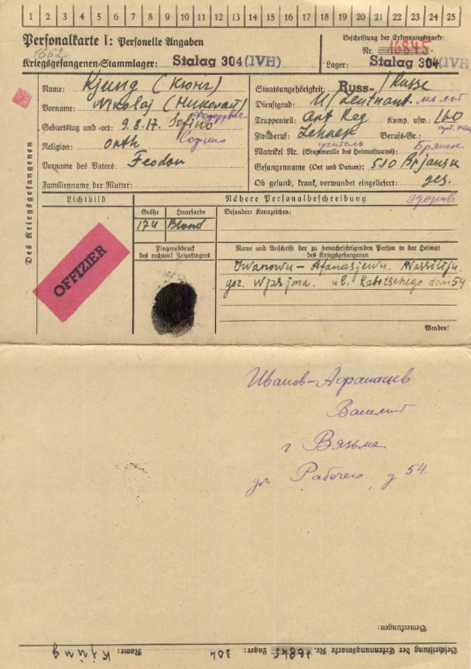 1 2 3 4 5 6 7 8 9 10 11 12 13 14 15 16 17 18 19 20 21 22 23 24 25
Personalkarte I: Personelle Angaben
Beschriftung der Erkennungsmarke
Nr. 16845
Kriegsgefangenen-Stammlager: Stalag 304 (IVH)
Lager: Stalag 304 (IVH)
Des Kriegsgefangenen
Name: Kjung (Кюнг)
Staatsangehörigkeit: Russ- / Russe
Vorname: Nikolaj (Николай)
Dienstgrad: U/Leutnant.
Geburtstag und -ort: 9.8.17. Sofino
Truppenteil: Art Reg Komp. usw.: 160
Religion: orth
Zivilberuf: Lehrer Berufs-Gr.:
учитель
Matrikel Nr. (Stammrolle des Heimatstaates): Брянск
Vorname des Vaters: Feodor
Gefangennahme (Ort und Datum): Brjansk
Familienname der Mutter:
Ob gesund, krank, verwundet eingeliefert: ges.
здоров
Lichtbild
Nähere Personalbeschreibung
Größe Haarfarbe
Besondere Kennzeichen:
174 Blond
OFFIZIER
Fingerabdruck
des rechten! Zeigefingers
Name und Anschrift der zu benachrichtigenden Person in der Heimat
des Kriegsgefangenen
Iwanowu-Afanasjewu Wassiliju.
gor. Wjasjma. ul. Rabotschego dom 54
Wenden!
Иванов-Афанасьев
Василий
г Вязьма
ул. Рабочего, д 54.
Bemerkungen:
Beschriftung der Erkennungsmarke Nr. 16845 Lager: 304 Name: Kjung